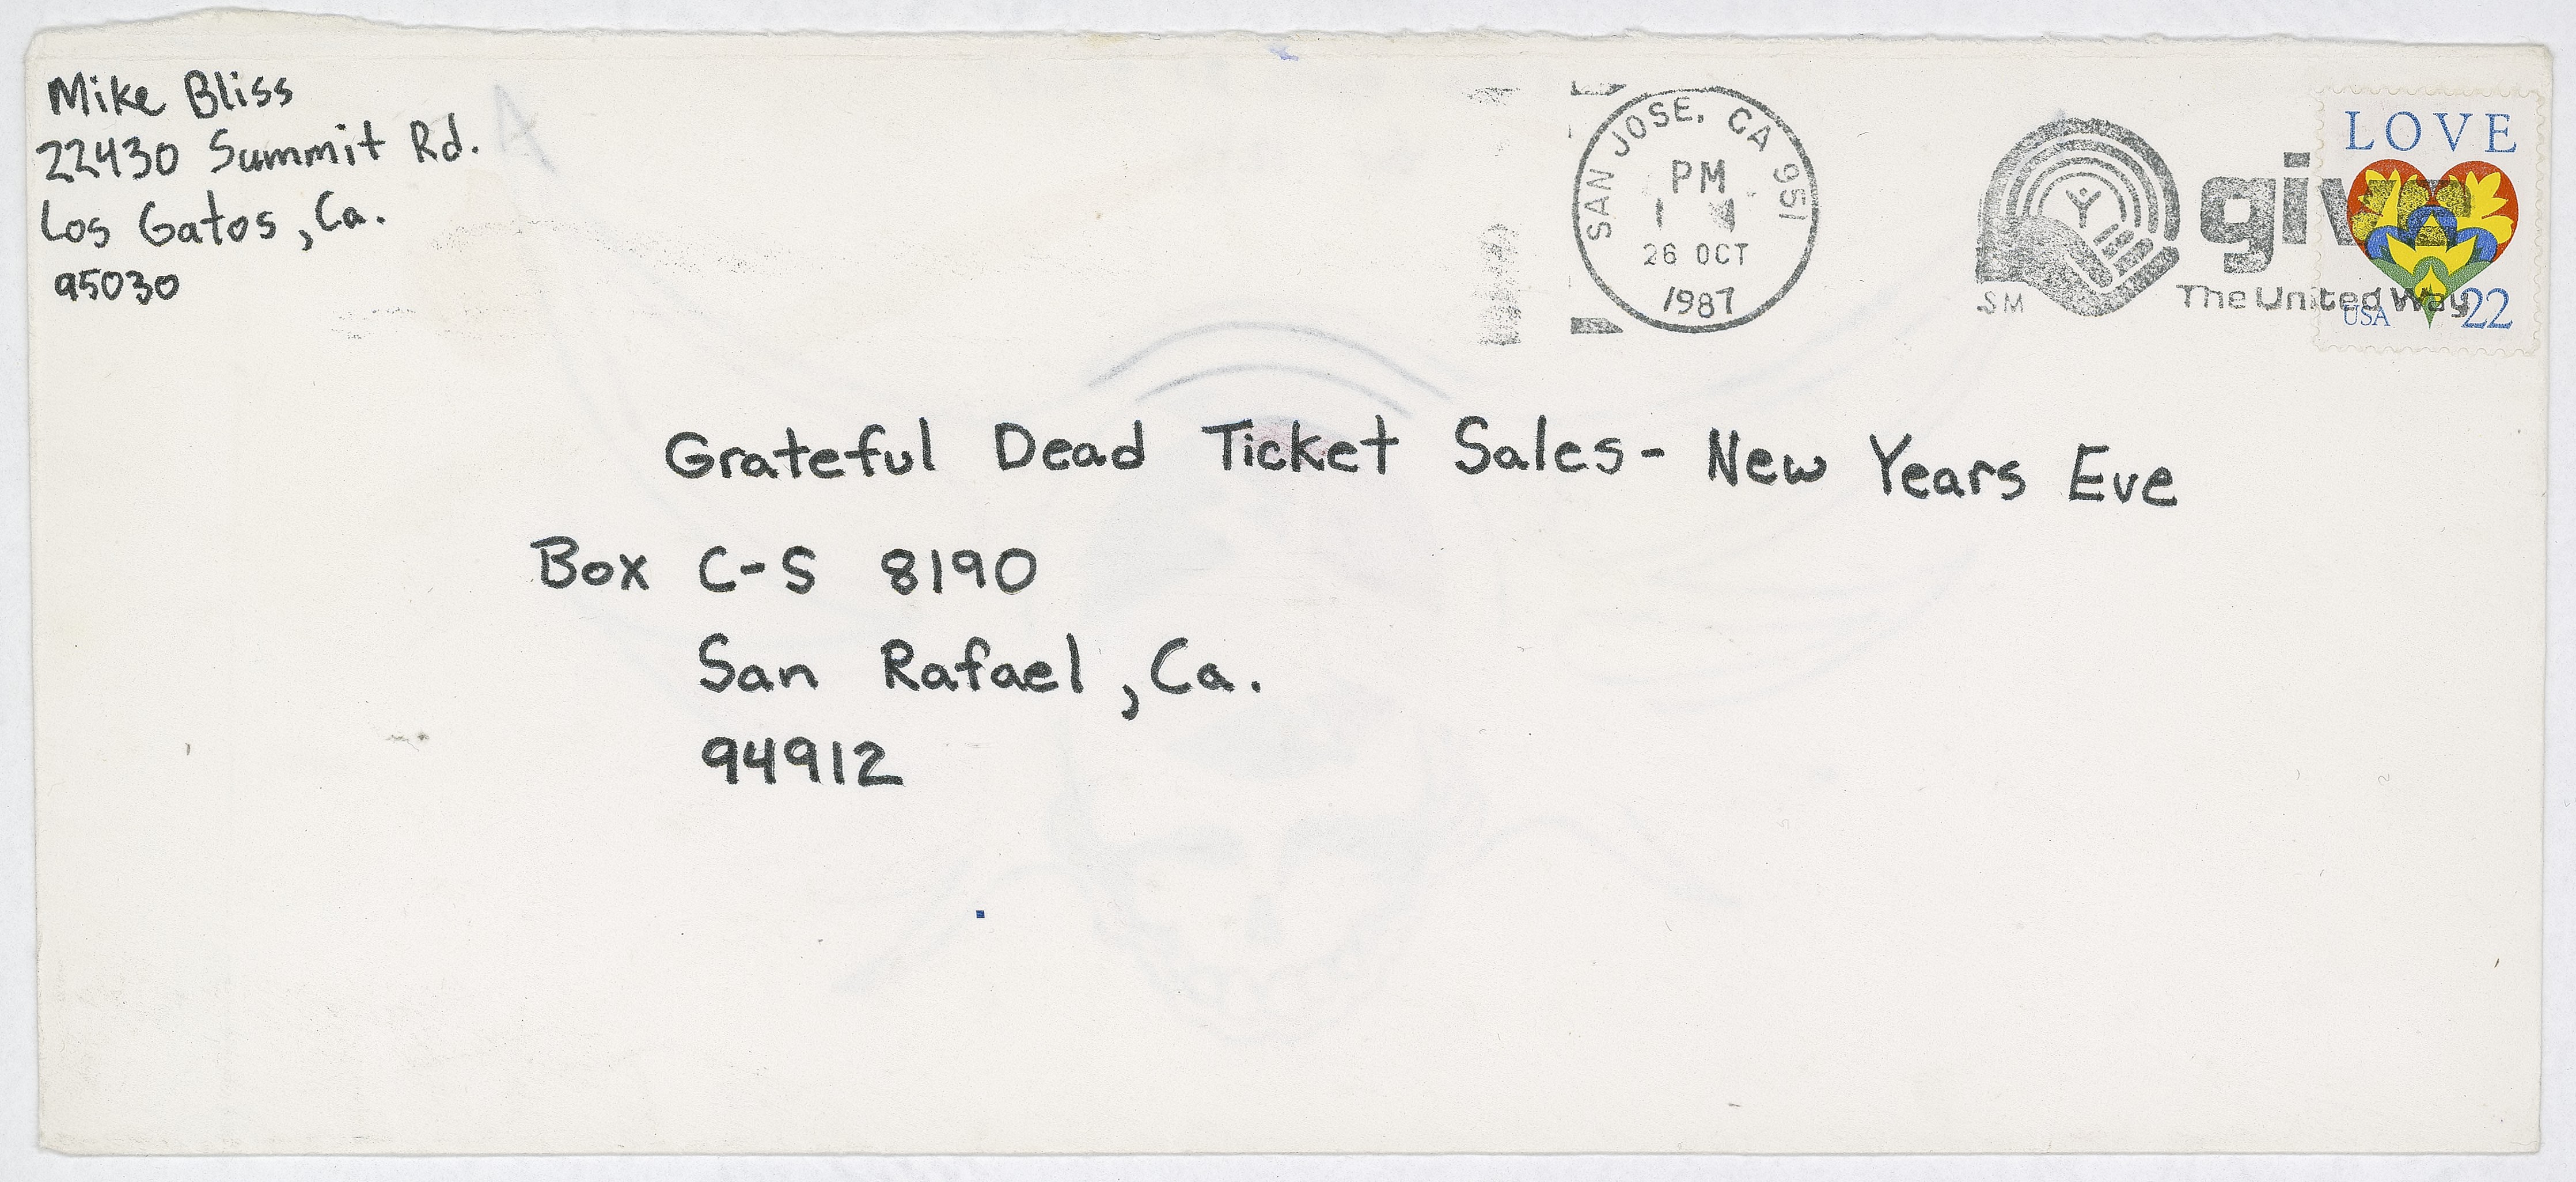 Mike Bliss
22430 Summit Rd.
Los Gatos, Ca.
95030
SAN JOSE, CA 951
PM
26 OCT
1987
SM
giv
The United Way
LOVE
USA 22
Grateful Dead Ticket Sales- New Years Eve
Box C-S 8190
San Rafael, Ca.
94912